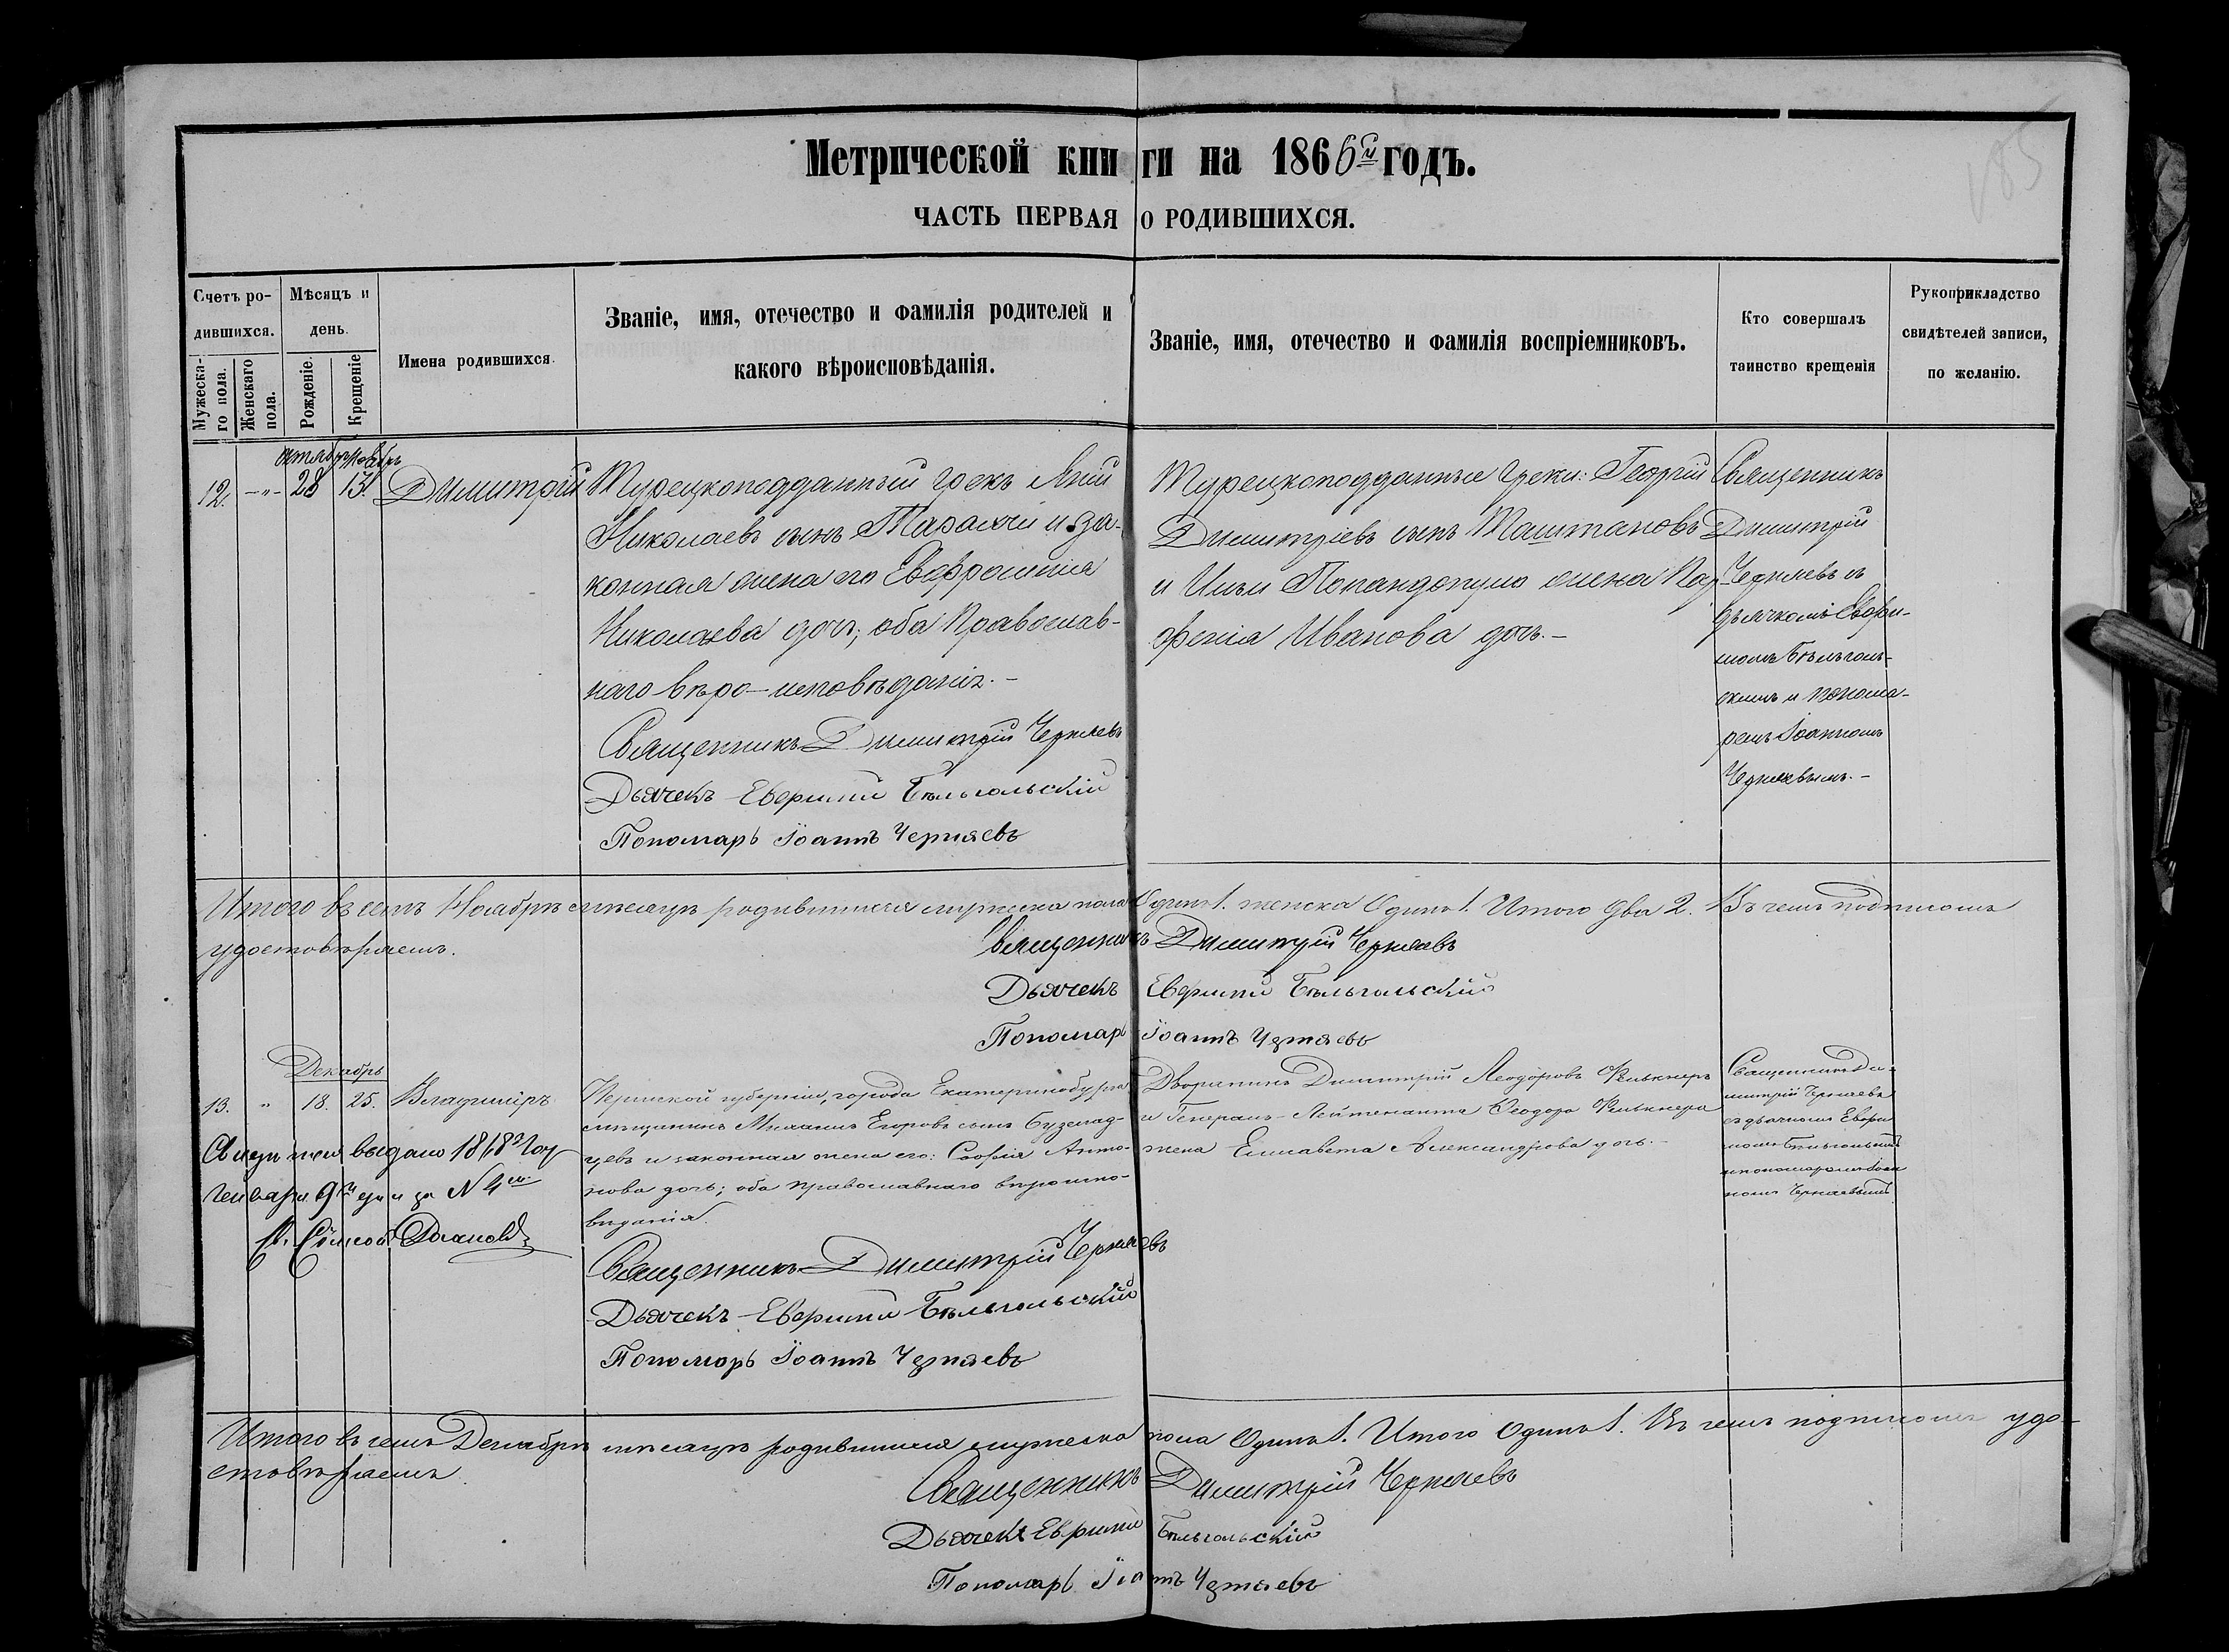 185
Метрической книги на 1866й годъ.
ЧАСТЬ ПЕРВАЯ О РОДИВШИХСЯ.
Счетъ ро-
дившихся.
Мужеска-
го пола.
Женскаго
пола.
Мѣсяцъ и
день.
Рожденіе.
Крещеніе
Имена родившихся.
Званіе, имя, отечество и фамилія родителей и
какого вѣроисповѣданія.
Званіе, имя, отечество и фамилія воспріемниковъ.
Кто совершалъ
таинство крещенія
Рукоприкладство
свидѣтелей записи,
по желанію.
Октябрь Ноябрь
12. -"- 28 13. Димитрій
Турецкоподданный грекъ
Николаевъ сынъ и за-
конная жена его Евфросинія
Николаева дочь; оба Православ-
наго вѣро-исповѣданія.-
Священникъ Димитрій Черняевъ
Дьячекъ Евфимій Бѣльгольскій
Пономарь Іоаннъ Черняевъ
Турецкоподданные Греки: Георгій
Димитріевъ сынъ Таштановъ
и Ильи Попандопуло жена Пар-
фенія Иванова дочь.-
Священникъ
Димитрій
Черняевъ съ
дьячкомъ Евфи-
момъ Бѣльголь-
скимъ и понома-
ремъ Іоанномъ
Черняевымъ.-
Итого въ семъ Ноябрѣ мѣсяцѣ родившихся мужеска пола Одинъ 1. женска Одинъ 1. Итого Два 2. Въ чемъ подписомъ
удостовѣряемъ.
Священникъ Димитрій Черняевъ
Дьячекъ Евфимій Бѣльгольскій
Пономарь Іоаннъ Черняевъ
Декабрь
13. " 18. 25. Владиміръ
Пермской губерніи, города Екатеринбурга
мѣщанинъ Михаилъ Егоровъ сынъ
цевъ и законная жена его: Софія Анто-
нова дочь; оба православнаго вѣроиспо-
вѣданія.
Священникъ Димитрій Черняевъ
Дьячекъ Евфимій Бѣльгольскій
Пономарь Іоаннъ Черняевъ
Дворянинъ Димитрій Ѳеодоровъ Фелькнеръ
и Генералъ-Лейтенанта Ѳеодора Фелькнера
жена Елисавета Александрова дочь.-
Священникъ Ди-
митрій Черняевъ
съ дьячкомъ Евфи-
момъ Бѣльгольскимъ
и пономаремъ Іоан-
номъ Черняевымъ.
выдано 1868 году
Генваря 9го дня за № 4м
Итого въ семъ Декабрѣ мѣсяцѣ родившихся мужеска пола Одинъ 1. Итого Одинъ 1. Въ чемъ подписомъ удо-
стовѣряемъ.
Священникъ Димитрій Черняевъ
Дьячекъ Евфимій Бѣльгольскій
Пономарь Іоаннъ Черняевъ